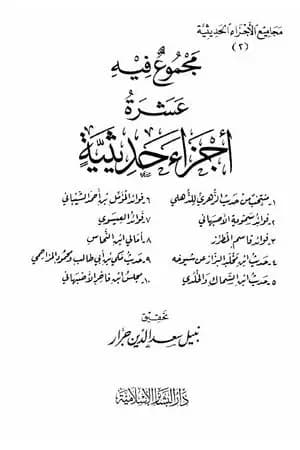 مجاميع الأجزاء الحديثية
(٢)
مَجْمُوعٌ فِيْهِ
عَشَرَةُ
أَجْزَاءَ حَدِيْثِيَّةٍ
١- منتخب من حديث الزهري للذهلي
٢- فوائد سمويه الأصبهاني
٣- فوائد قاسم المطرز
٤- حديث ابن مخلد البزاز عن شيوخه
٥- حديث ابن السماك والخلدي
٦- فوائد المؤمل بن أحمد الشيباني
٧- فوائد العيسوي
٨- أمالي ابن النحاس
٩- حديث مكي بن أبي طالب ومحمود المزاحمي
١٠- مجلس ابن فاخر الأصبهاني
تحقيق
نبيل سعد الدين جرار
دار البشائر الإسلامية